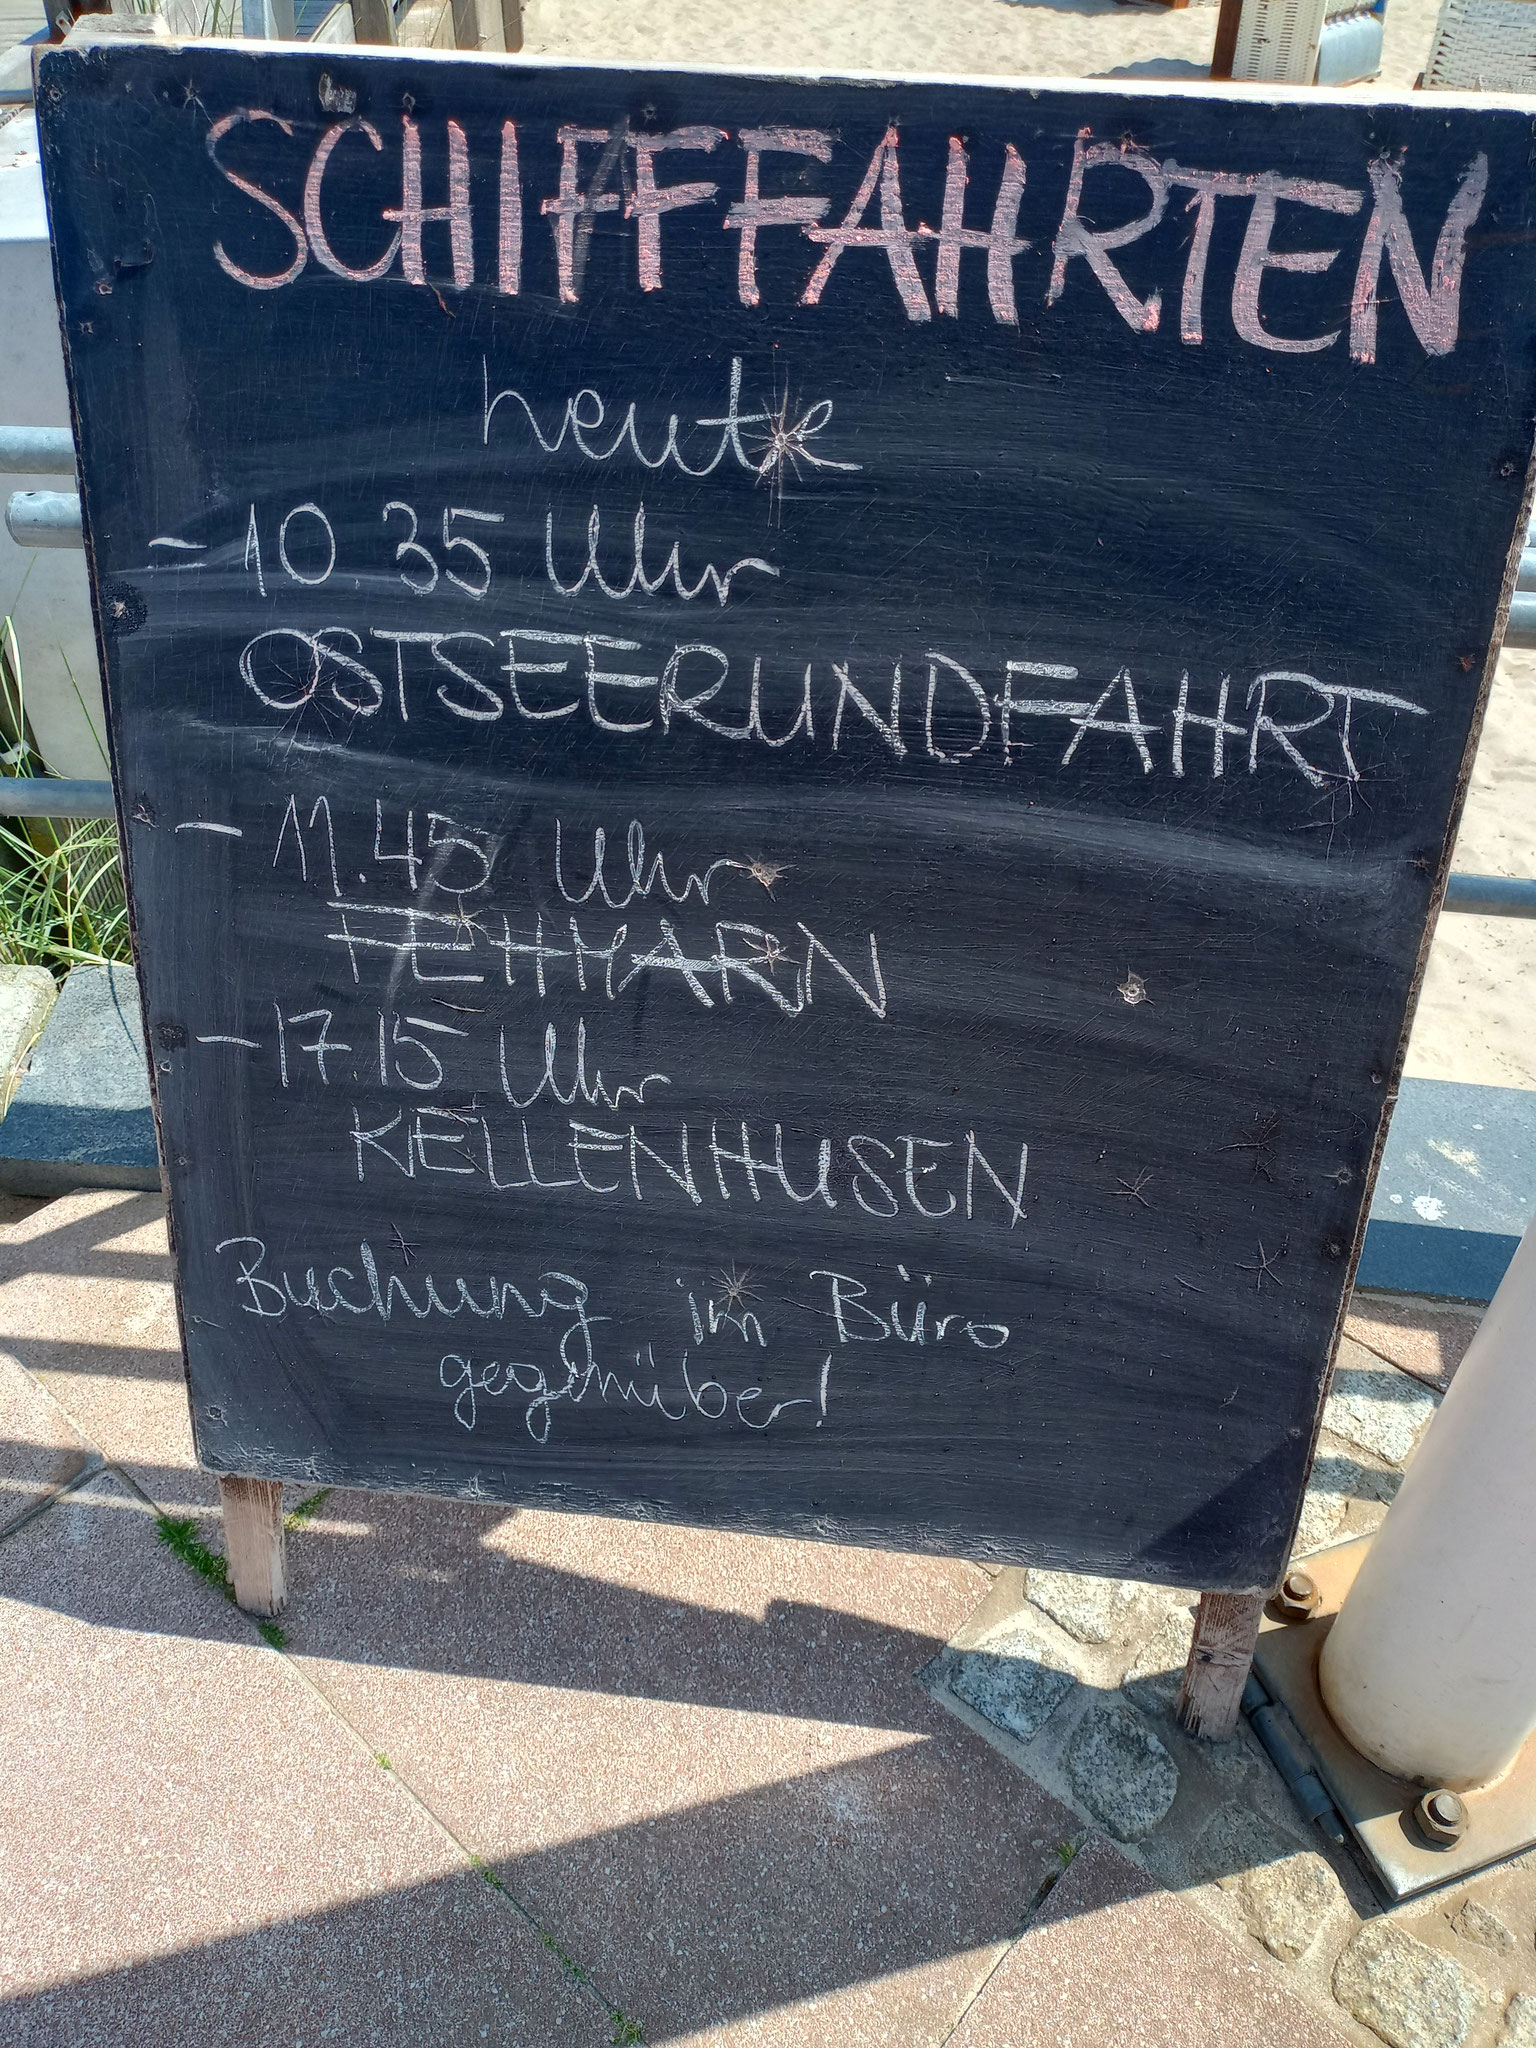 SCHIFFFAHRTEN
heute
- 10 35 Uhr
OSTSEERUNDFAHRT
- 11.45 Uhr
FEHMARN
- 17.15 Uhr
KELLENHUSEN
Buchung im Büro
gegenüber!